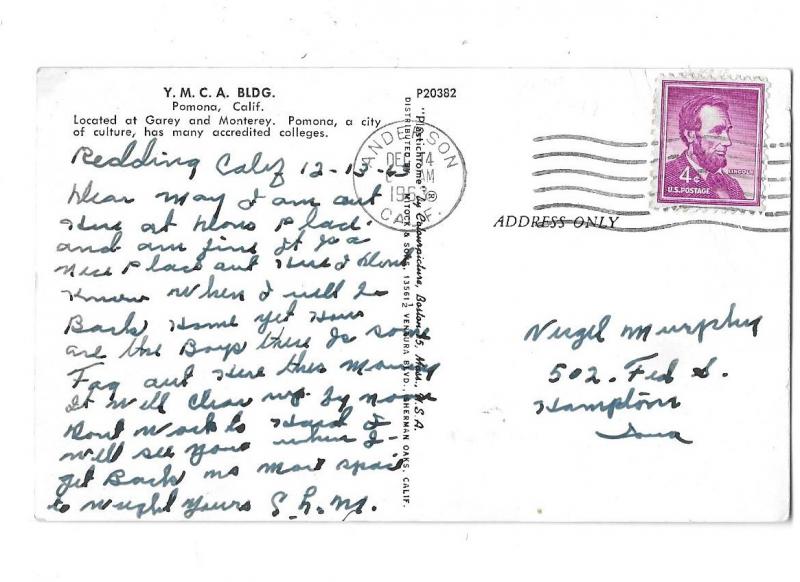 Y. M. C. A. BLDG.
Pomona, Calif.
Located at Garey and Monterey. Pomona, a city
of culture, has many accredited colleges.
P20382
Redding Calif 12-13-
Dear May I am out
Here at Mons Place
and am fine It is a
Nice Place out Here I dont
Know When I will be
Back Home yet How
are the Boys there Is some
Fog out Here this Morning
It will Clear up by noon
Dont Work to Hard I
will see you when I
get Back no more space
to Wright Yours S.L.M.
"Plastichrome" by Colourpicture, Boston 15, Mass., U.S.A.
DISTRIBUTED BY MITOCK & SONS, 13561½ VENTURA BLVD., SHERMAN OAKS, CALIF.
ANDERSON
DEC 14
AM
CALIF.
4¢
LINCOLN
U.S. POSTAGE
ADDRESS ONLY
Virgil Murphy
502. Fed S.
Hampton
Iowa